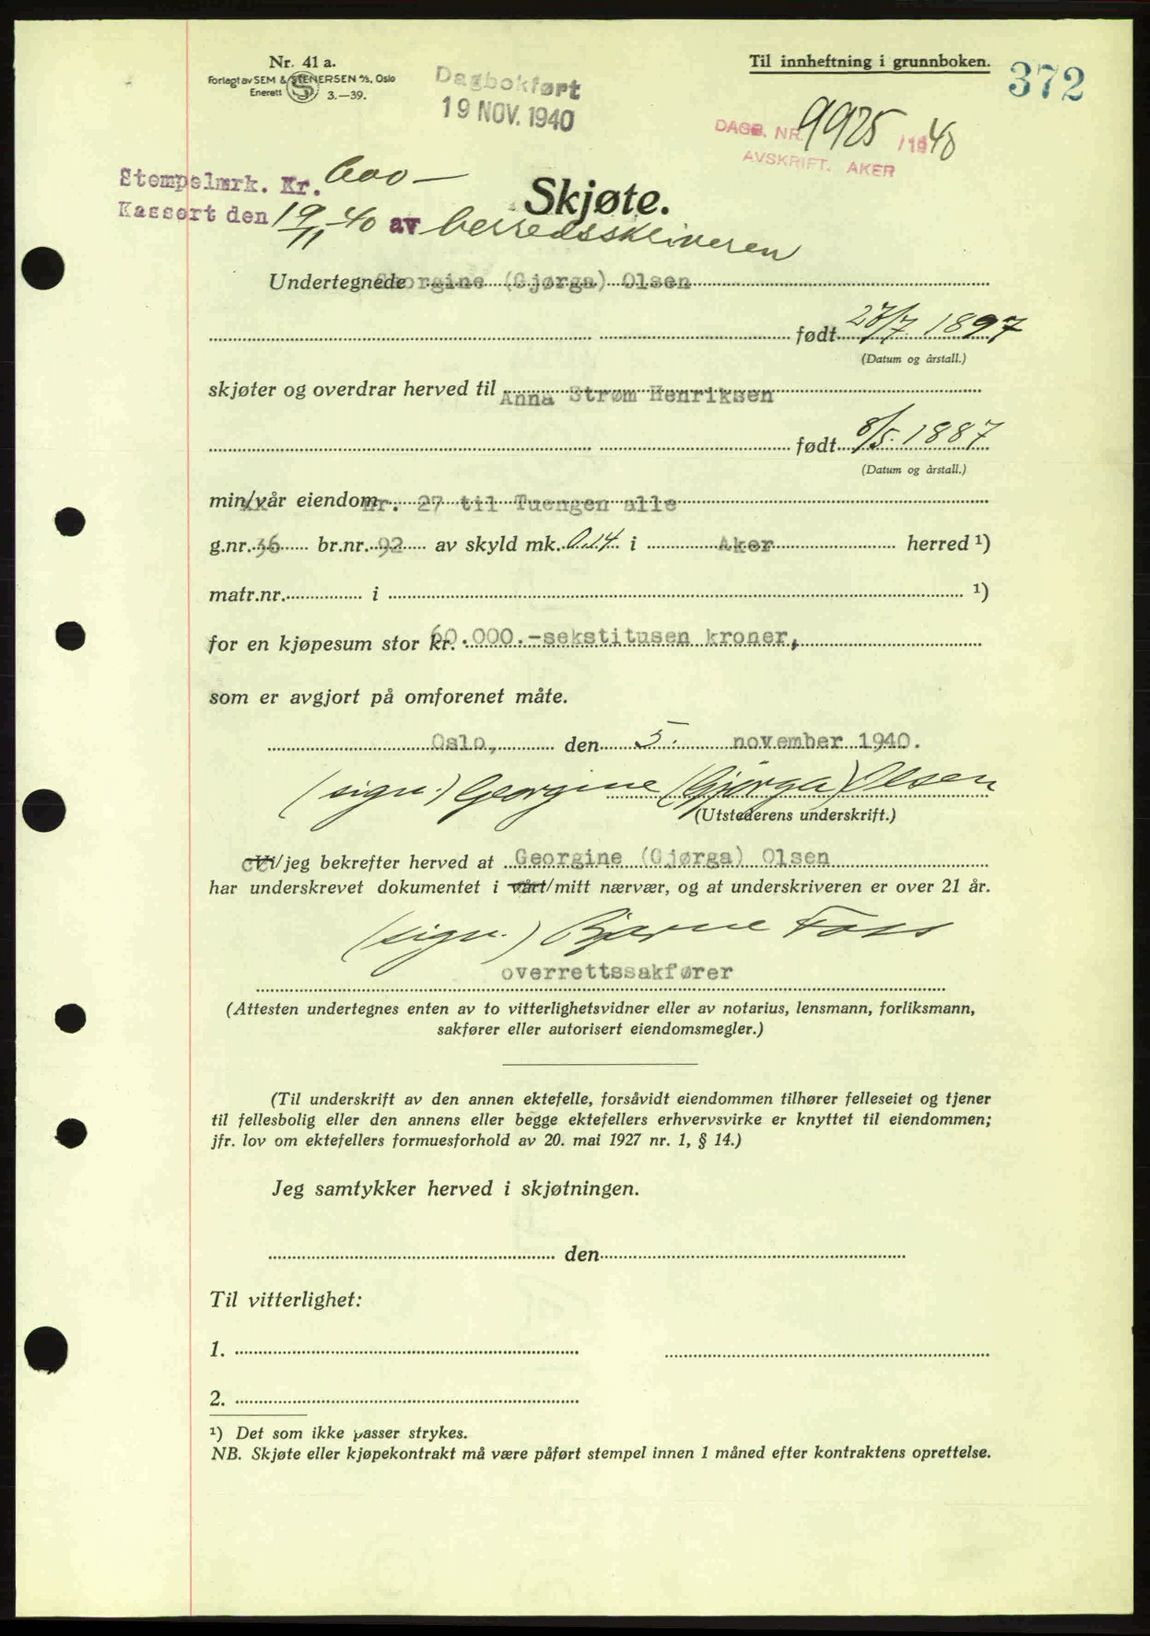 Nr. 41 a.
Forlagt av SEM & STENERSEN A/S, Oslo
Enerett 3.—39.
Dagbokført
19 NOV. 1940
Til innheftning i grunnboken.
372
DAGB. NR. 9925 /1940
AVSKRIFT. AKER
Stempelmrk. Kr. 600 —
Kassert den 19/11 40 av
Skjøte.
Undertegnede Georgine (Gjørga) Olsen
født 27/7. 1897
(Datum og årstall.)
skjøter og overdrar herved til Anna Strøm Henriksen
født 8/5. 1887
(Datum og årstall.)
min/vår eiendom nr. 27 til Tuengen alle
g.nr. 36 br.nr. 92 av skyld mk. 0.14 i Aker herred ¹)
matr.nr. i ¹)
for en kjøpesum stor kr. 60.000.-sekstitusen kroner,
som er avgjort på omforenet måte.
Oslo, den 5. november 1940.
(sign.) Georgine (Gjörga) Olsen
(Utstederens underskrift.)
Vi/jeg bekrefter herved at Georgine (Gjørga) Olsen
har underskrevet dokumentet i vårt/mitt nærvær, og at underskriveren er over 21 år.
(sign.) Bjarne Foss
overrettssakfører
(Attesten undertegnes enten av to vitterlighetsvidner eller av notarius, lensmann, forliksmann,
sakfører eller autorisert eiendomsmegler.)
(Til underskrift av den annen ektefelle, forsåvidt eiendommen tilhører felleseiet og tjener
til fellesbolig eller den annens eller begge ektefellers erhvervsvirke er knyttet til eiendommen;
jfr. lov om ektefellers formuesforhold av 20. mai 1927 nr. 1, § 14.)
Jeg samtykker herved i skjøtningen.
den
Til vitterlighet:
1.
2.
¹) Det som ikke passer strykes.
NB. Skjøte eller kjøpekontrakt må være påført stempel innen 1 måned efter kontraktens oprettelse.